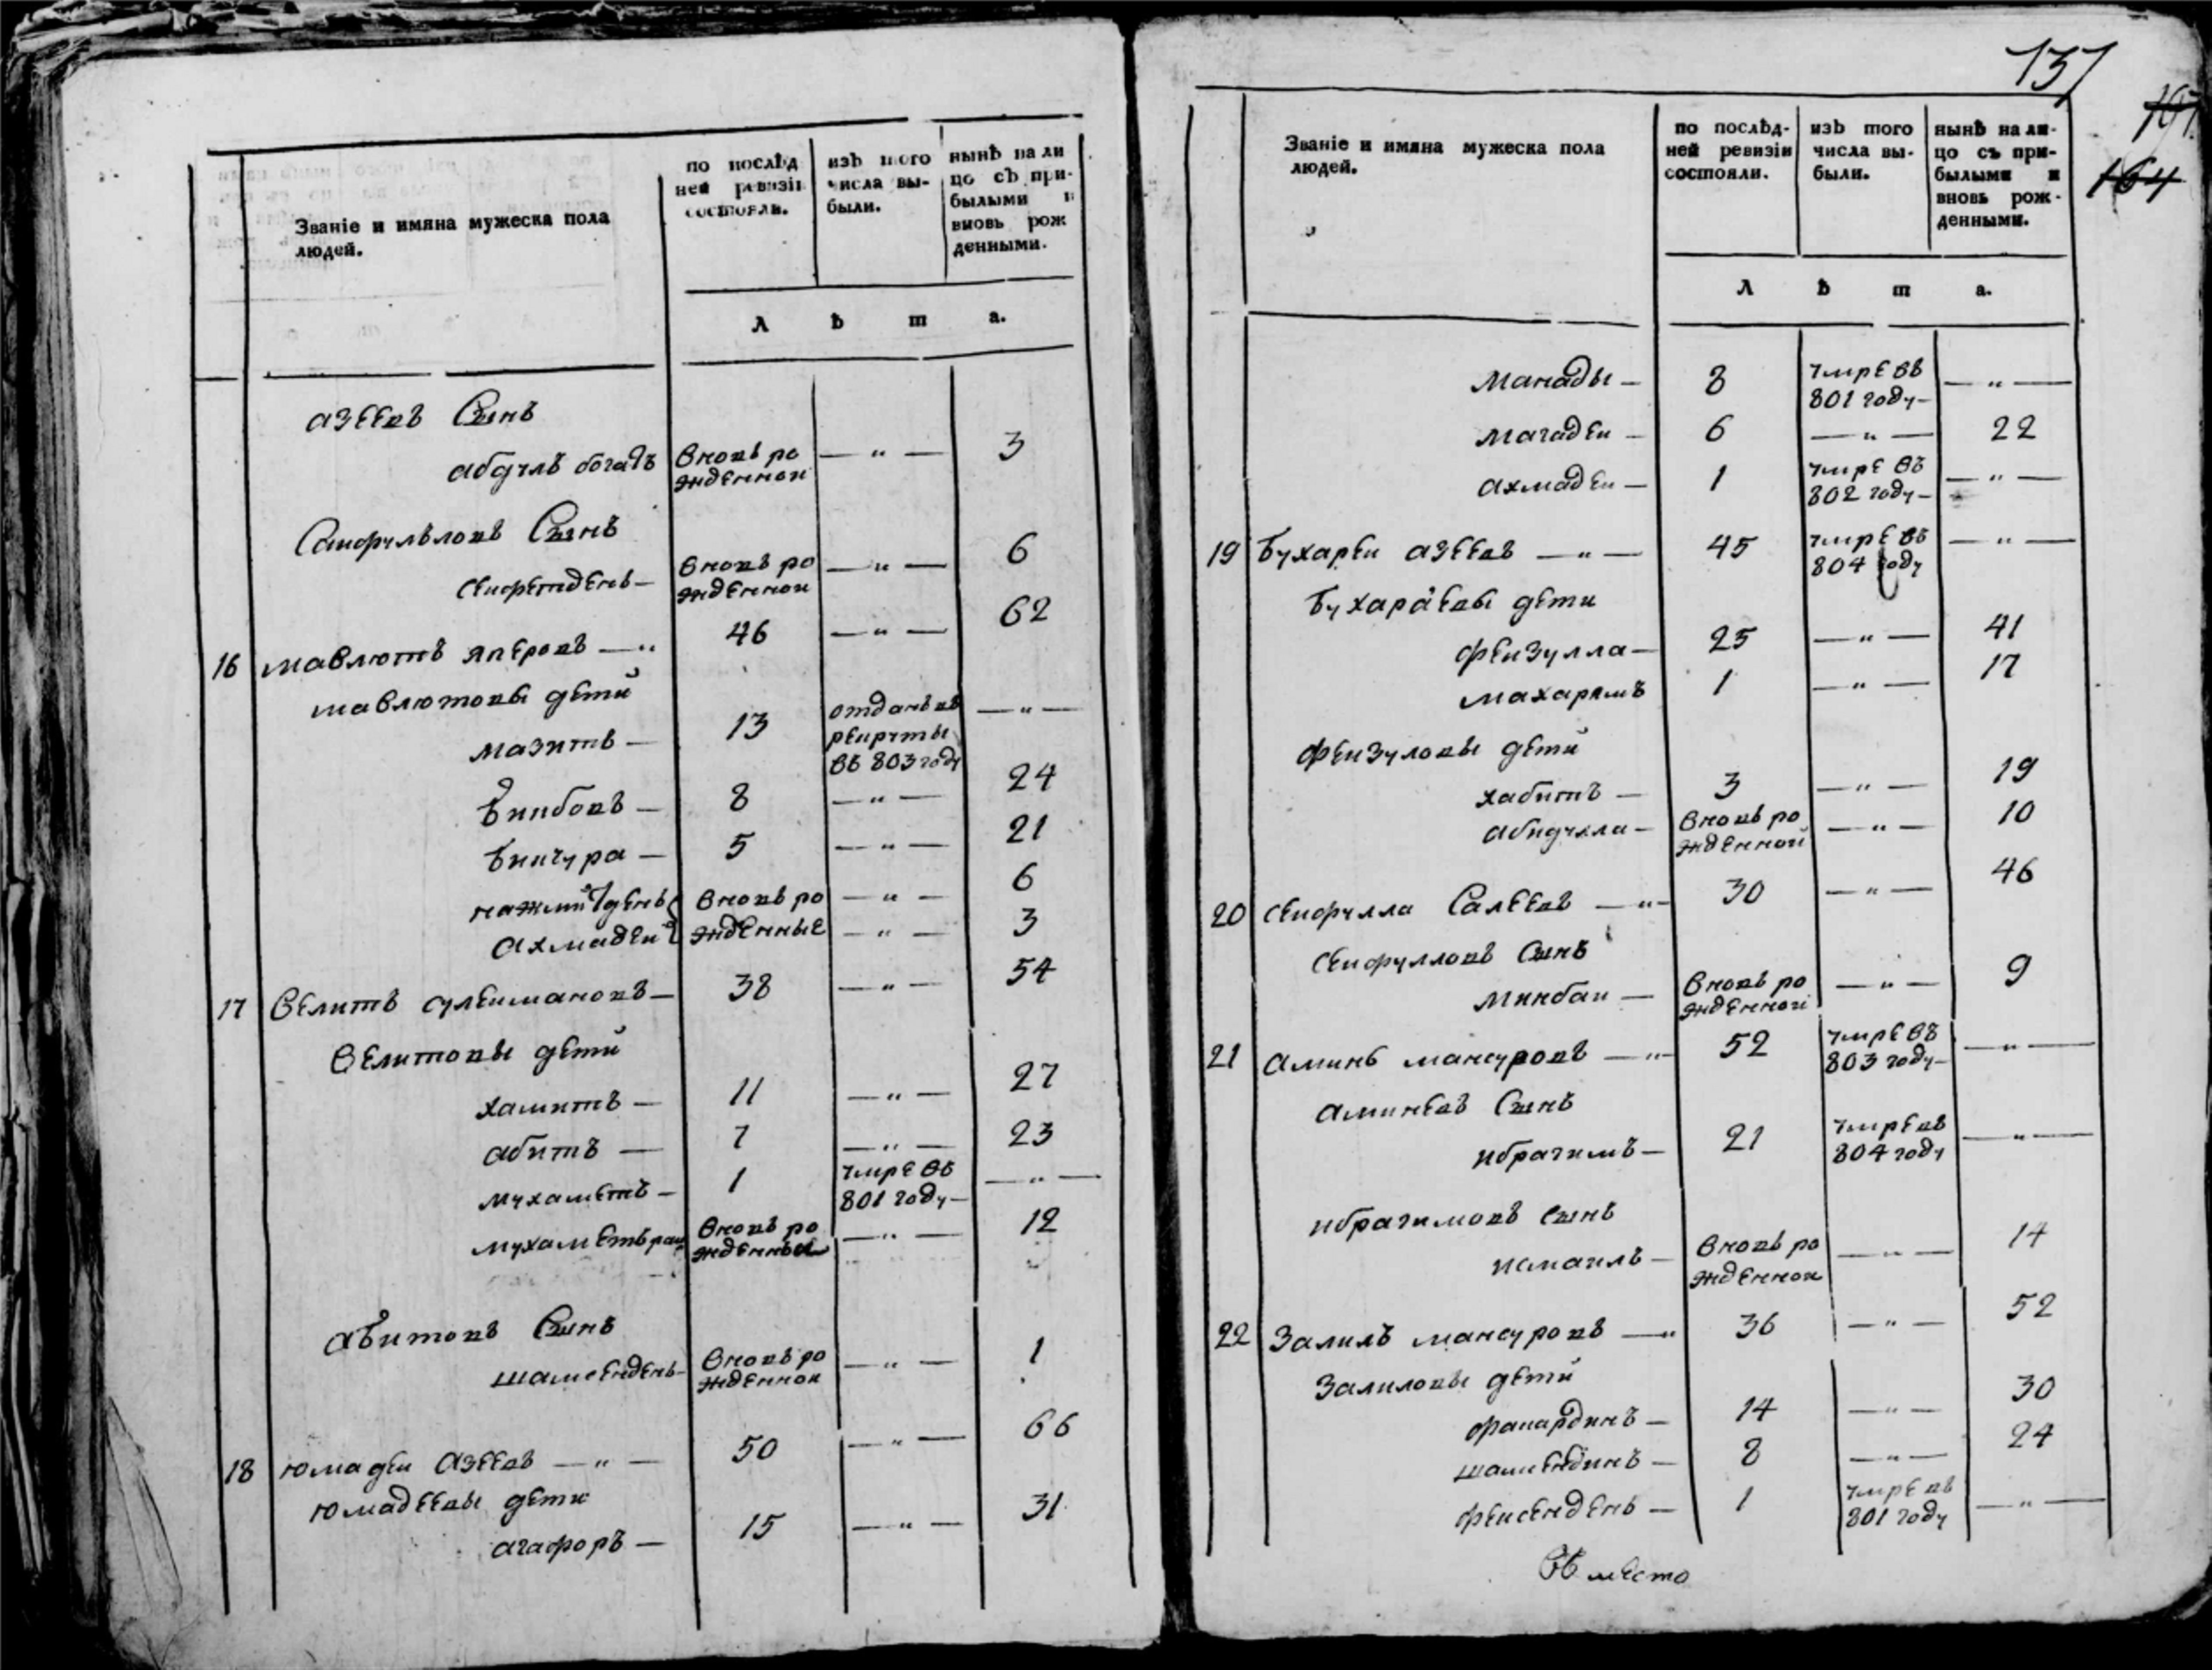 Званіе и имяна мужеска пола
людей.
по послѣд
ней ревизіи
состояли.
изъ того
числа вы-
были.
нынѣ на ли
цо съ при-
былыми и
вновь рож
денными.
Л ѣ т а.
азеевъ Сынъ
абдулъ богатъ вновь ро — „ — 3
жденной
Сынъ
сеифетдень — вновь ро — „ — 6
жденной
16 мавлютъ яперовъ — „ 46 — „ — 62
мавлютовы дети
мазитъ — 13 отданъ въ — „ —
рекруты
въ 803 году
8 — „ — 24
бикчура — 5 — „ — 21
вновь ро — „ — 6
ахмадеи жденные — „ — 3
17 велитъ сулеимановъ — 38 — „ — 54
велитовы дети
хамитъ — 11 — „ — 27
абитъ — 7 — „ — 23
мухаметъ — 1 умре въ — „ —
801 году —
вновь ро — „ — 12
жденныи
абитовъ Сынъ
шамсендень — вновь ро — „ — 1
жденной
18 юмадеи азеевъ — „ — 50 — „ — 66
юмадеевы дети
агафоръ — 15 — „ — 31
137
164
Званіе и имяна мужеска пола
людей.
по послѣд-
ней ревизіи
состояли.
изъ того
числа вы-
были.
нынѣ на ли-
цо съ при-
былыми и
вновь рож-
денными.
Л ѣ т а.
манады — 8 умре въ — „ —
801 году —
магадеи — 6 — „ — 22
ахмадеи — 1 умре въ — „ —
802 году —
19 бухареи азеевъ — „ — 45 умре въ — „ —
804 году
бухараевы дети
феизулла — 25 — „ — 41
махарямъ 1 — „ — 17
феизуловы дети
хабитъ — 3 — „ — 19
абидулла — вновь ро — „ — 10
жденной
20 сеифулла Салеевъ — „ — 30 — „ — 46
сеифулловъ сынъ
минбаи — вновь ро — „ — 9
жденной
21 аминь мансуровъ — „ — 52 умре въ — „ —
803 году —
аминевъ Сынъ
ибрагимъ — 21 умре въ — „ —
804 году
ибрагимовъ сынъ
исмаилъ — вновь ро — „ — 14
жденной
22 Залилъ мансуровъ — „ 36 — „ — 52
Залиловы дети
14 — „ — 30
шамсендинъ — 8 — „ — 24
феисендень — 1 умре въ — „ —
801 году